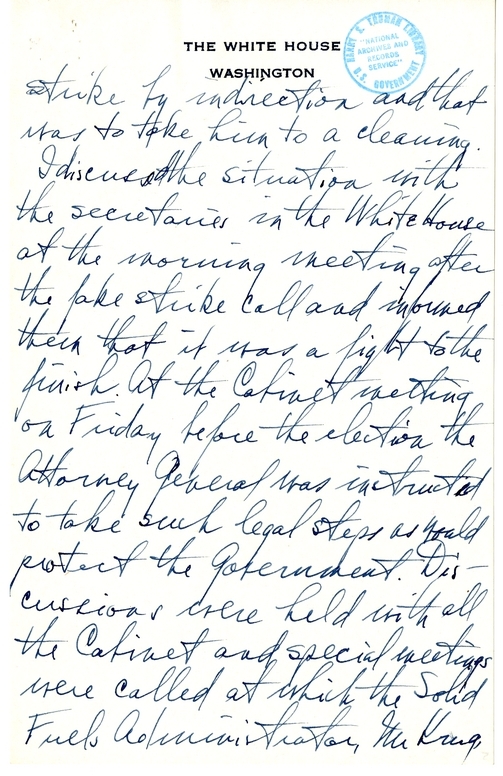 THE WHITE HOUSE
WASHINGTON
HARRY S. TRUMAN LIBRARY
"NATIONAL
ARCHIVES AND
RECORDS
SERVICE"
U.S. GOVERNMENT
strike by indirection and that
was to take him to a cleaning.
I discussed the situation with
the secretaries in the White House
at the morning meeting after
the fake strike call and informed
them that it was a fight to the
finish. At the Cabinet meeting
on Friday before the election the
Attorney General was instructed
to take such legal steps as would
protect the Government. Dis-
cussions were held with all
the Cabinet and special meetings
were called at which the Solid
Fuels Administrator, Mr Krug